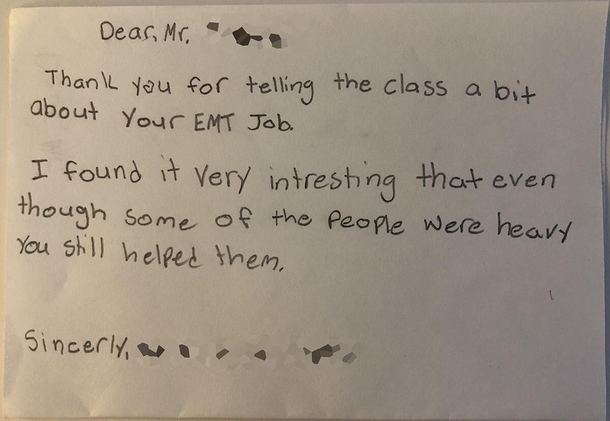 Dear, Mr,
Thank you for telling the class a bit
about Your EMT Job.
I found it Very intresting that even
though some of the People were heavy
You still helped them.
Sincerly,